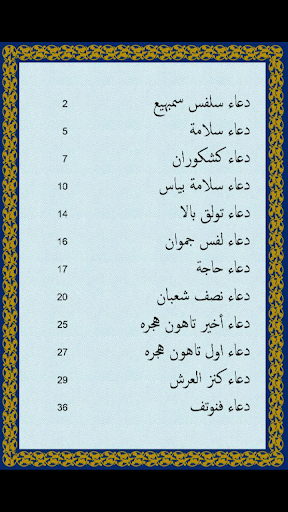 دعاء سلفس سمبهيغ 2
دعاء سلامة 5
دعاء كشكوران 7
دعاء سلامة بياس 10
دعاء تولق بالا 14
دعاء لفس جموان 16
دعاء حاجة 17
دعاء نصف شعبان 20
دعاء أخير تاهون هجره 25
دعاء اول تاهون هجره 27
دعاء كنز العرش 29
دعاء فنوتف 36